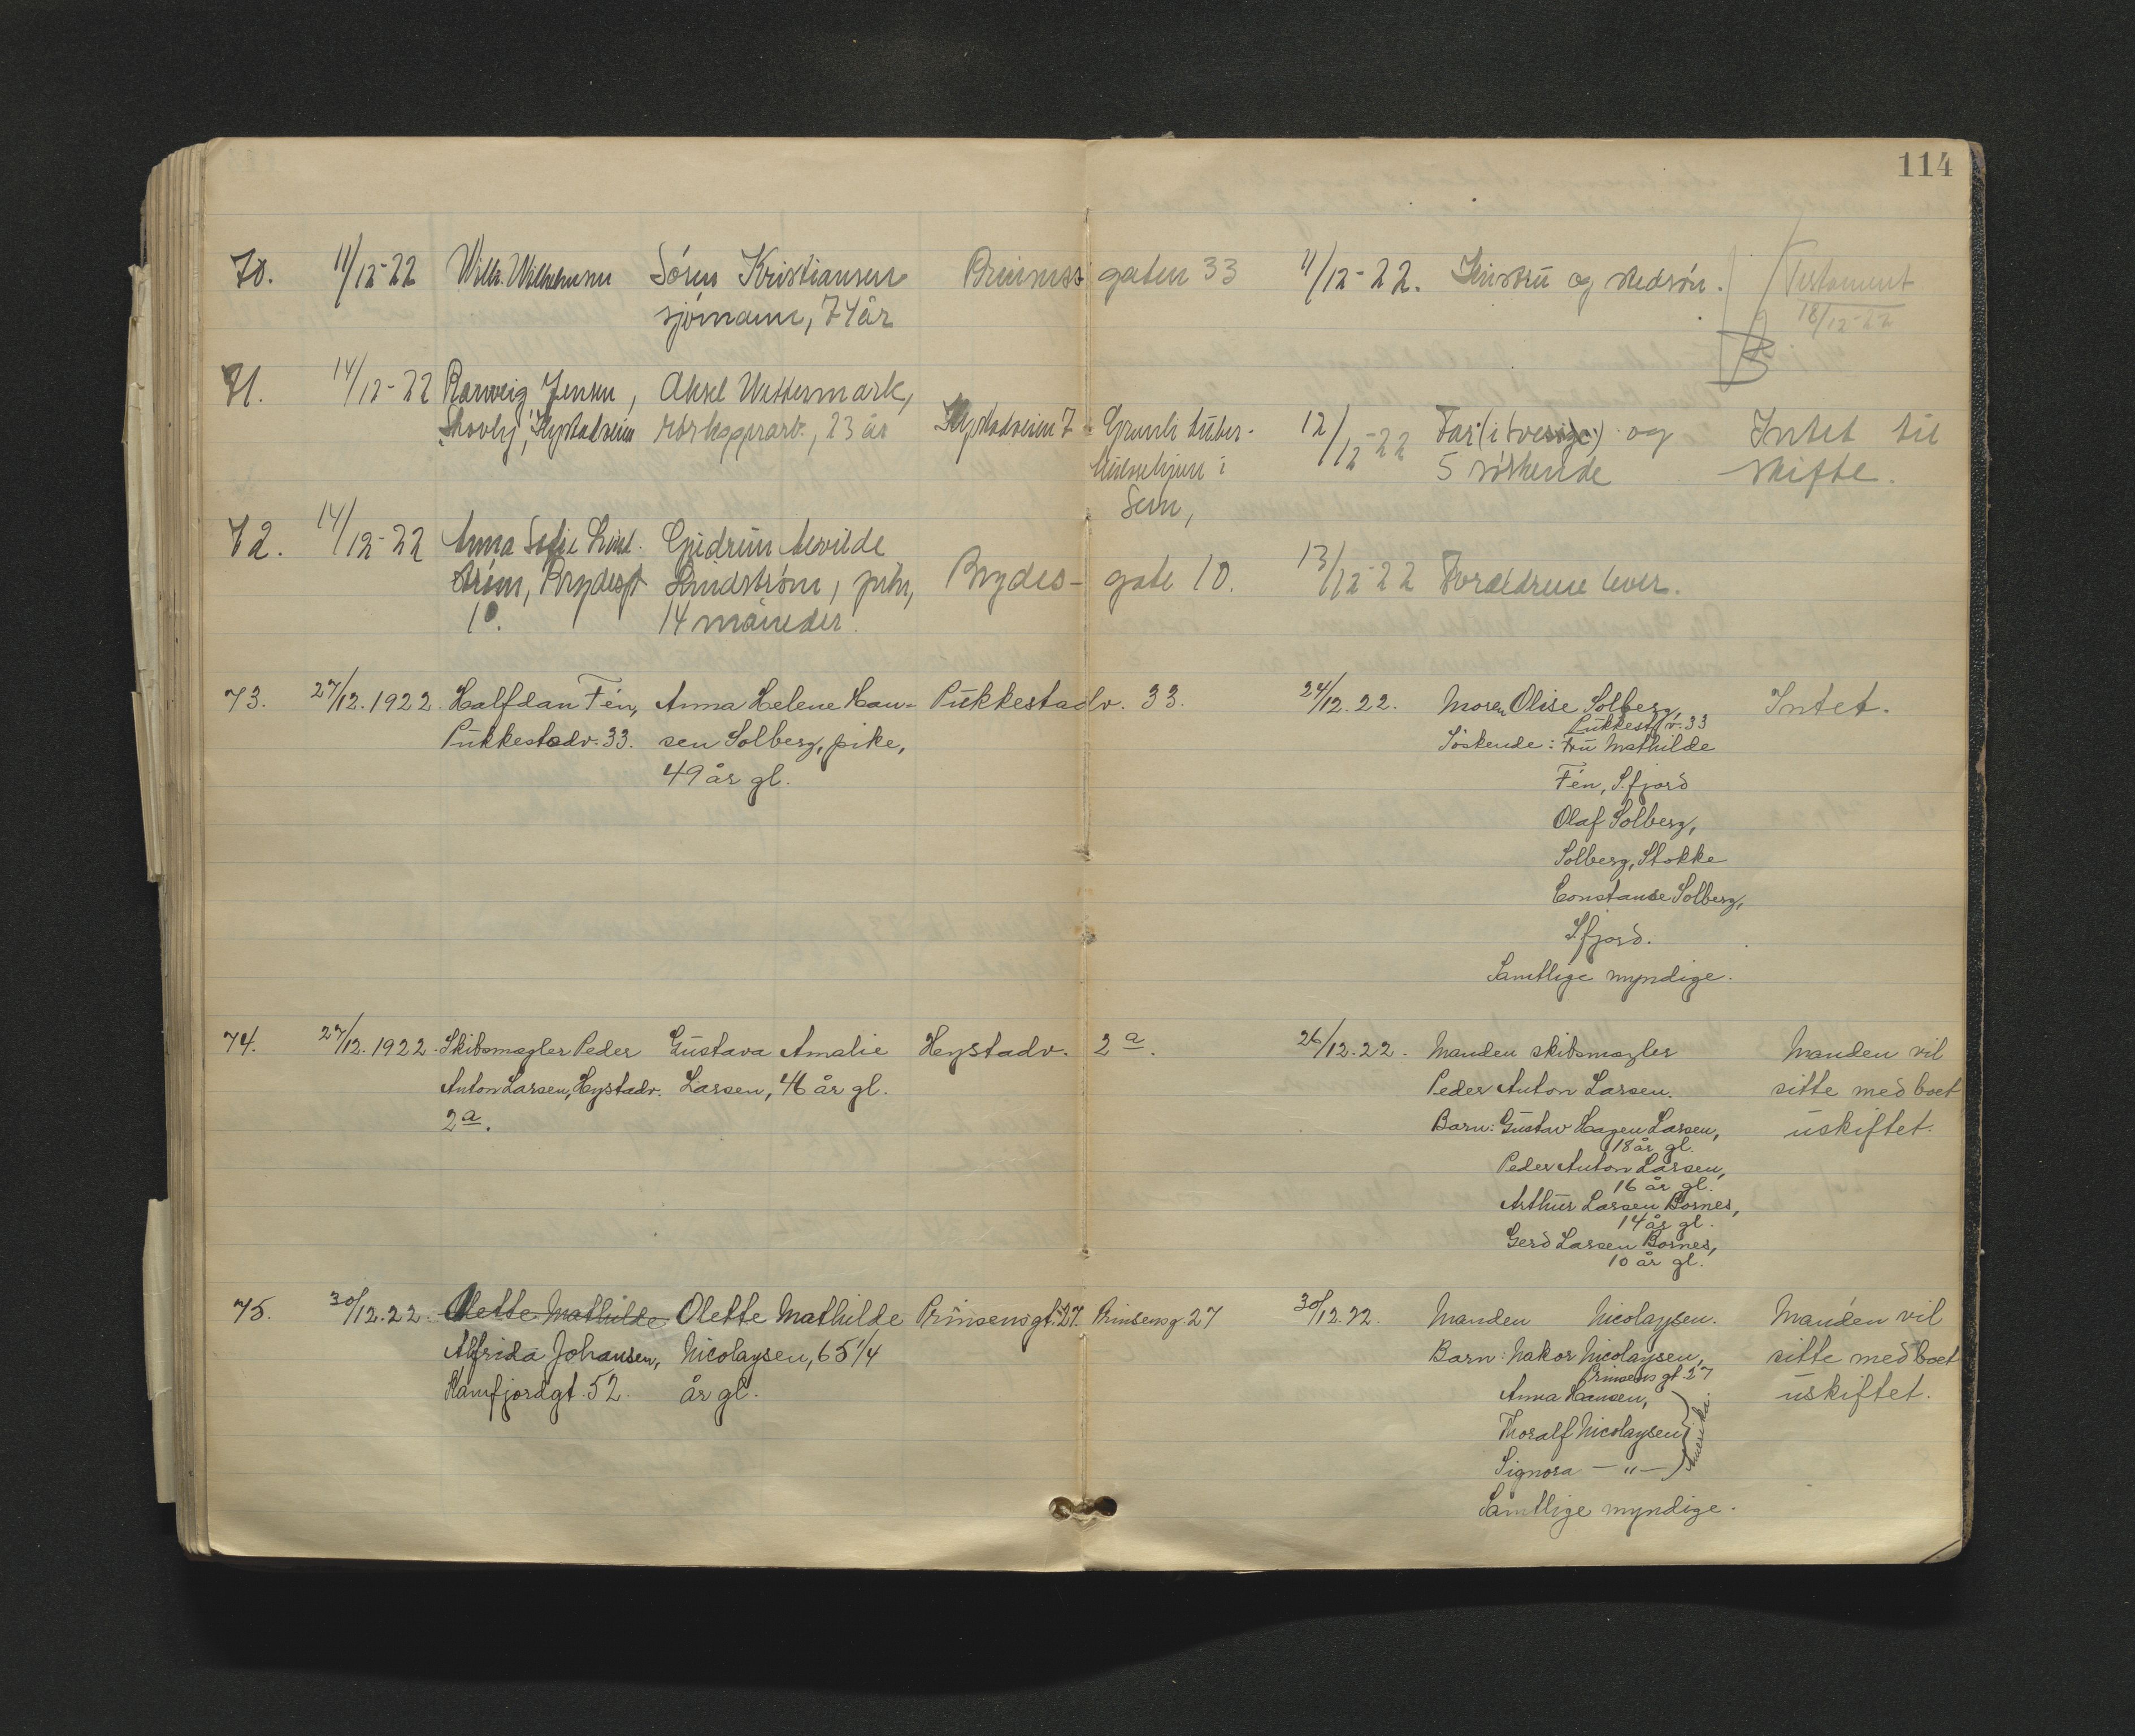 114
70. 11/12-22 Wilh. Wilhelmsen Søren Kristiansen Prinsens gaten 33 11/12-22. Hustru og stedsøn. Testament
sjømann, 74 år 18/12-22
71. 14/12-22 Jensen, Aksel Wettermark,
Skovly, Hystadveien rørleggerarb., 23 år Hystadveien 7 Grønli tuber- 12/12-22 Far (i Sverige) og Intet til
kulosehjem i 5 søskende skifte.
Sem,
72. 14/12-22 Anna Sofie Lind- Gudrun
strøm, Brydesgt Lindstrøm, pike, Brydes- gate 10. 13/12-22 Foreldrene lever.
10. 14 måneder.
73. 27/12.1922. Halfdan Fén, Anna Helene Han- Pukkestadv. 33. 24/12.22. Moren Olise Solberg, Intet.
Pukkest.v. 33
Pukkestadv. 33. sen Solberg, pike, Söskende: Fru Mathilde
49 år gl. Fén, S.fjord
Olaf Solberg,
Solberg, Stokke
Constanse Solberg,
S.fjord.
Samtlige myndige.
74. 27/12.1922. Skibsmægler Peder Gustava Amalie Hystadv. 2a. 26/12.22. Manden skibsmægler Manden vil
Anton Larsen, Hystadv. Larsen, 46 år gl. Peder Anton Larsen. sitte med boet
2a. Barn: Gustav Hagen Larsen, uskiftet.
18 år gl.
Peder Anton Larsen,
16 år gl.
Arthur Larsen Bornes,
14 år gl.
Gerd Larsen Bornes,
10 år gl.
75. 30/12.22. Olette Mathilde Olette Mathilde Prinsensgt. 27. Prinsensg. 27 30/12.22. Manden Nicolaysen. Manden vil
Alfrida Johansen, Nicolaysen, 65 1/4 Barn: Hakor Nicolaysen, sitte med boet
Prinsens gt. 27
Kamfjordgt. 52. år gl. Anna Hansen, uskiftet.
Thoralf Nicolaysen Amerika.
Signora — " —
Samtlige myndige.